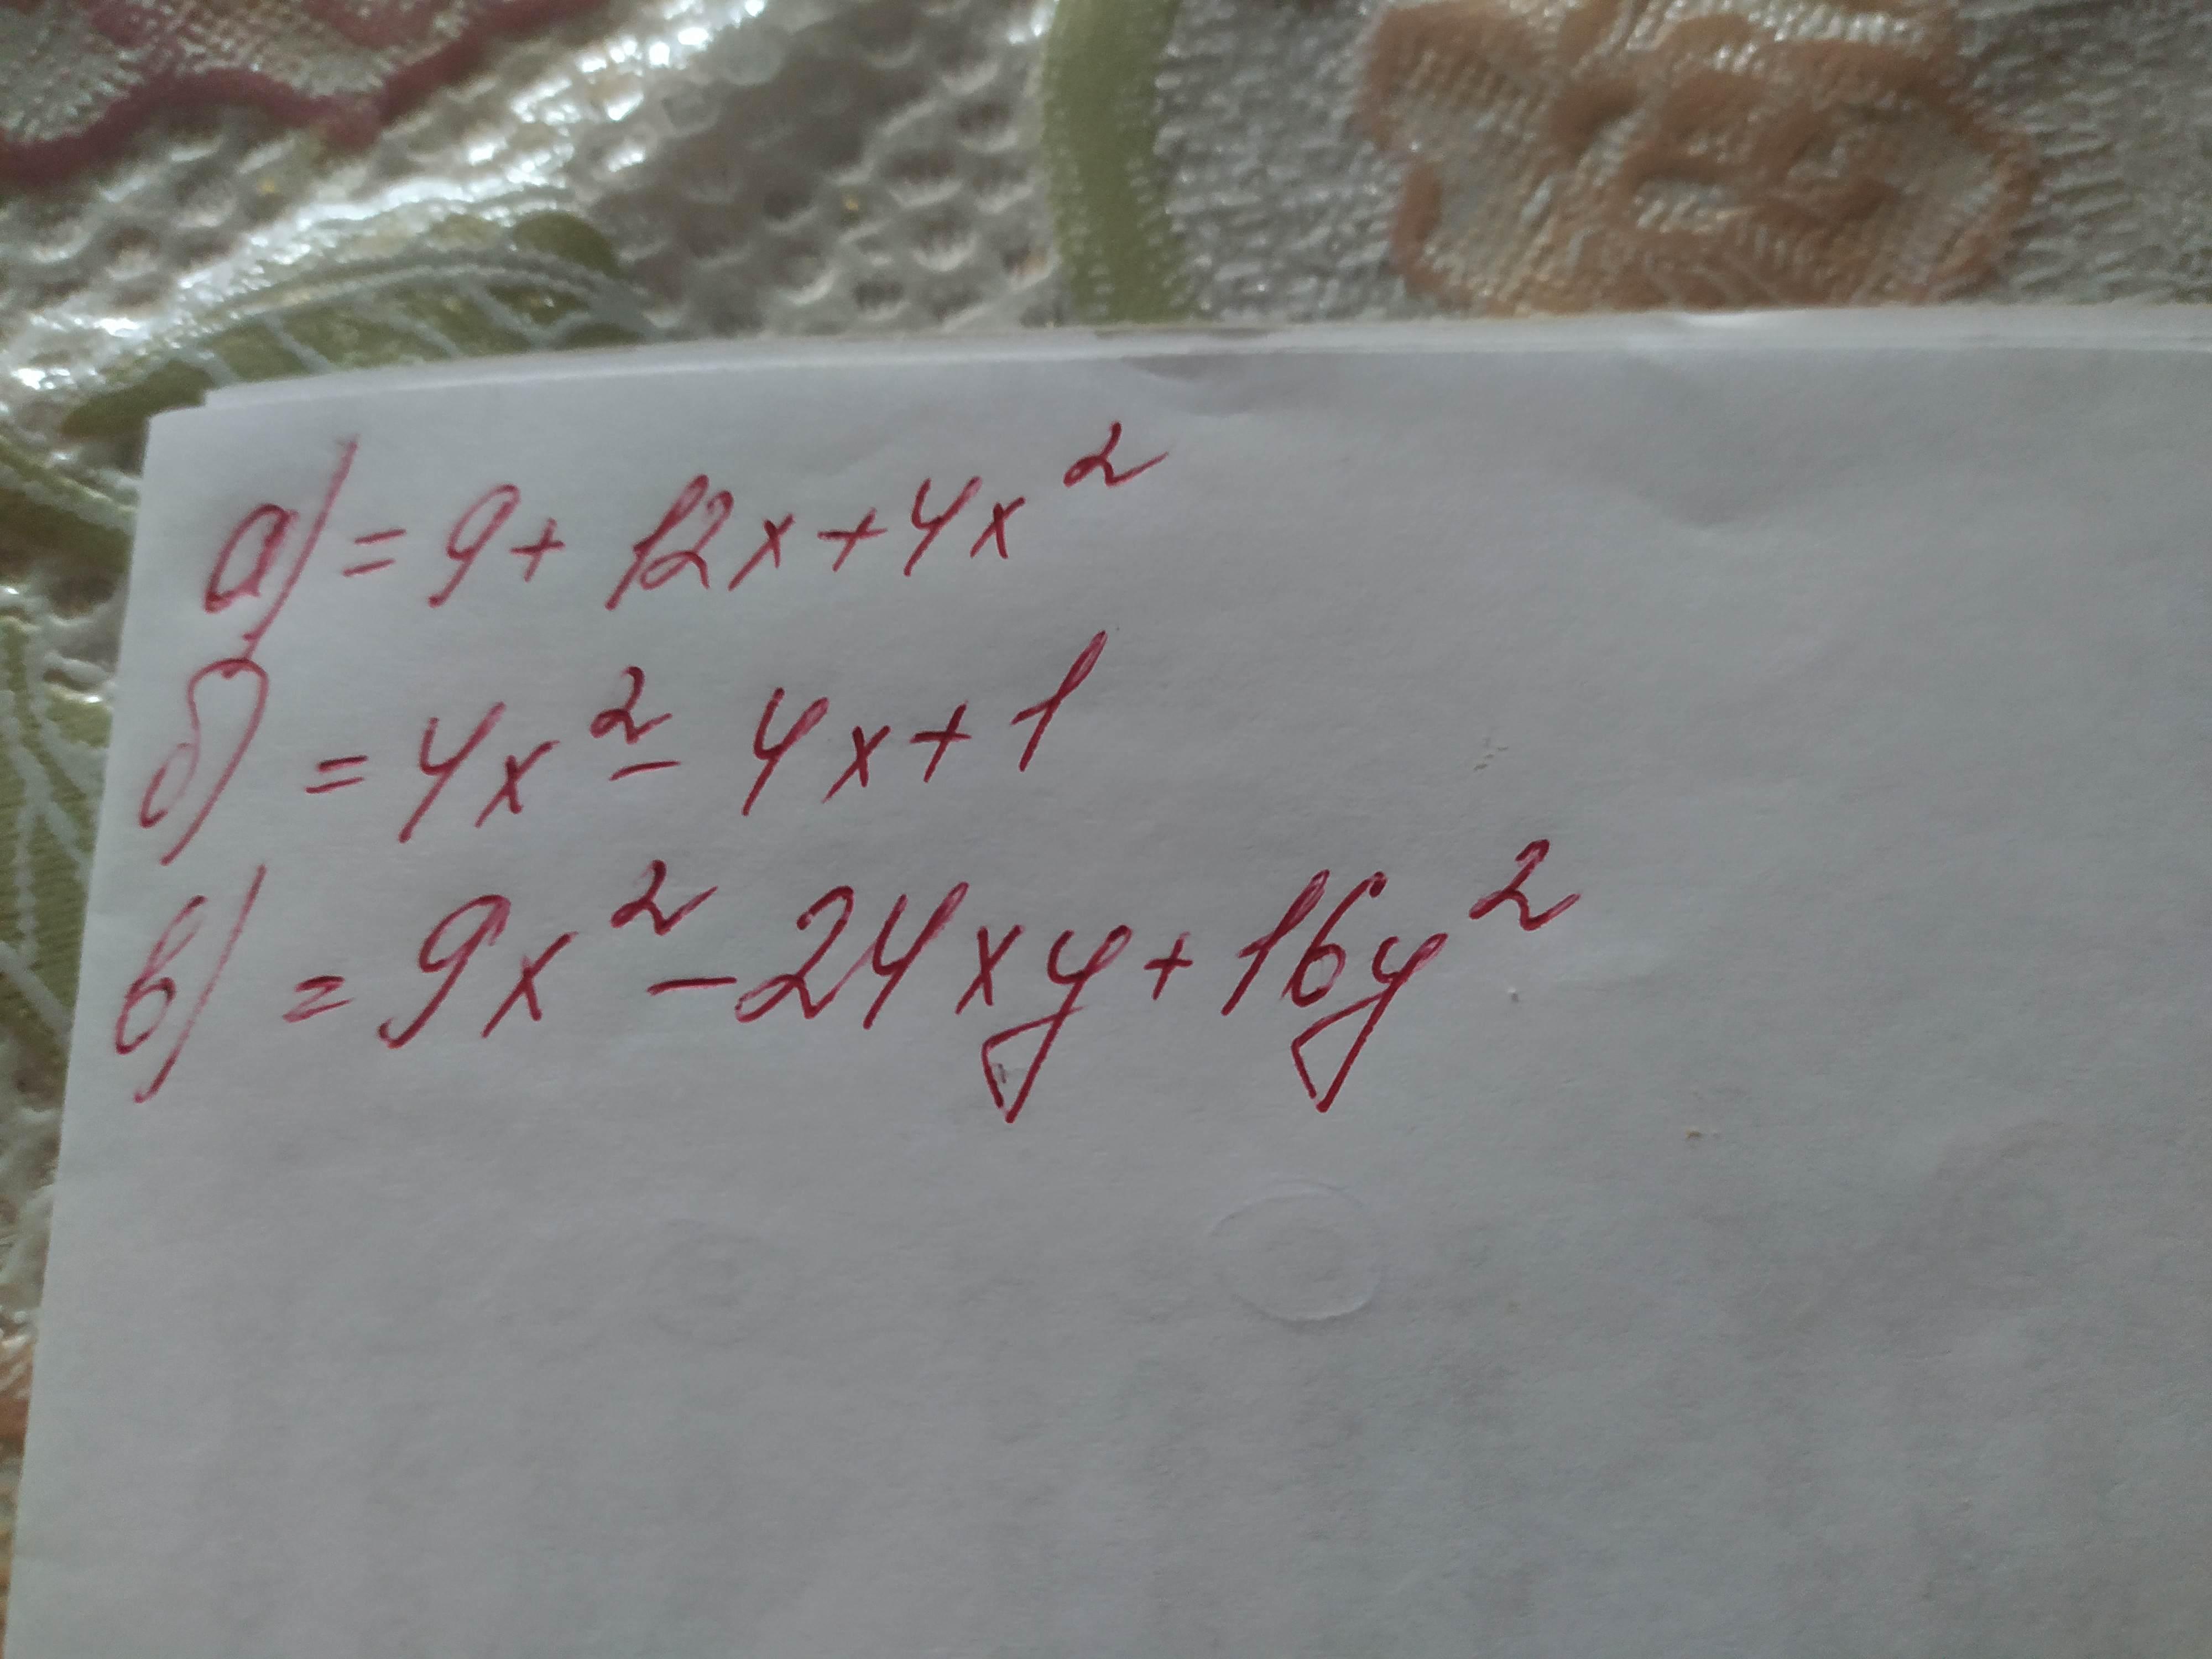 а) = 9 + 12x + 4x²
б) = 4x² - 4x + 1
в) = 9x² - 24xy + 16y²